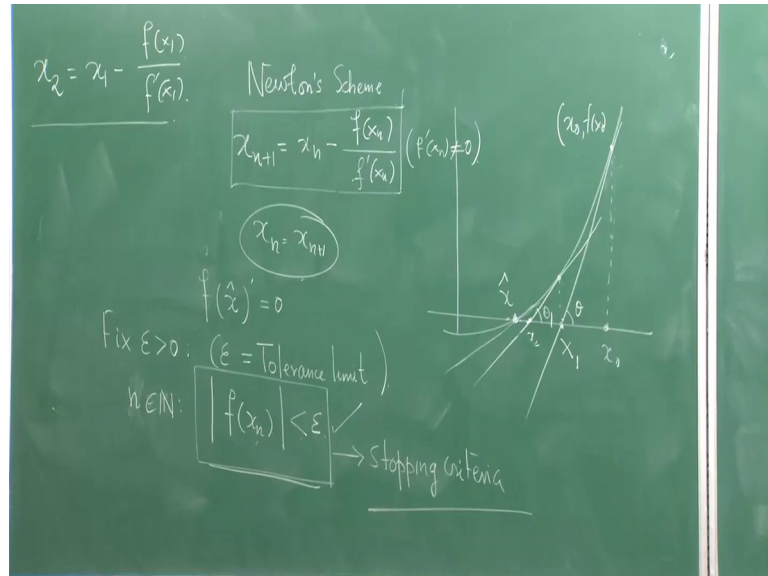 x₂ = x₁ - f(x₁)/f'(x₁).
Newton's Scheme
xₙ₊₁ = xₙ - f(xₙ)/f'(xₙ) (f'(xₙ)≠0)
xₙ = xₙ₊₁
f(x̂)' = 0
Fix ε>0: (ε = Tolerance limit)
n∈ℕ: |f(xₙ)| < ε ✓
→ Stopping criteria
(x₀, f(x₀)
x̂ θ₁ θ
x₂ x₁ x₀